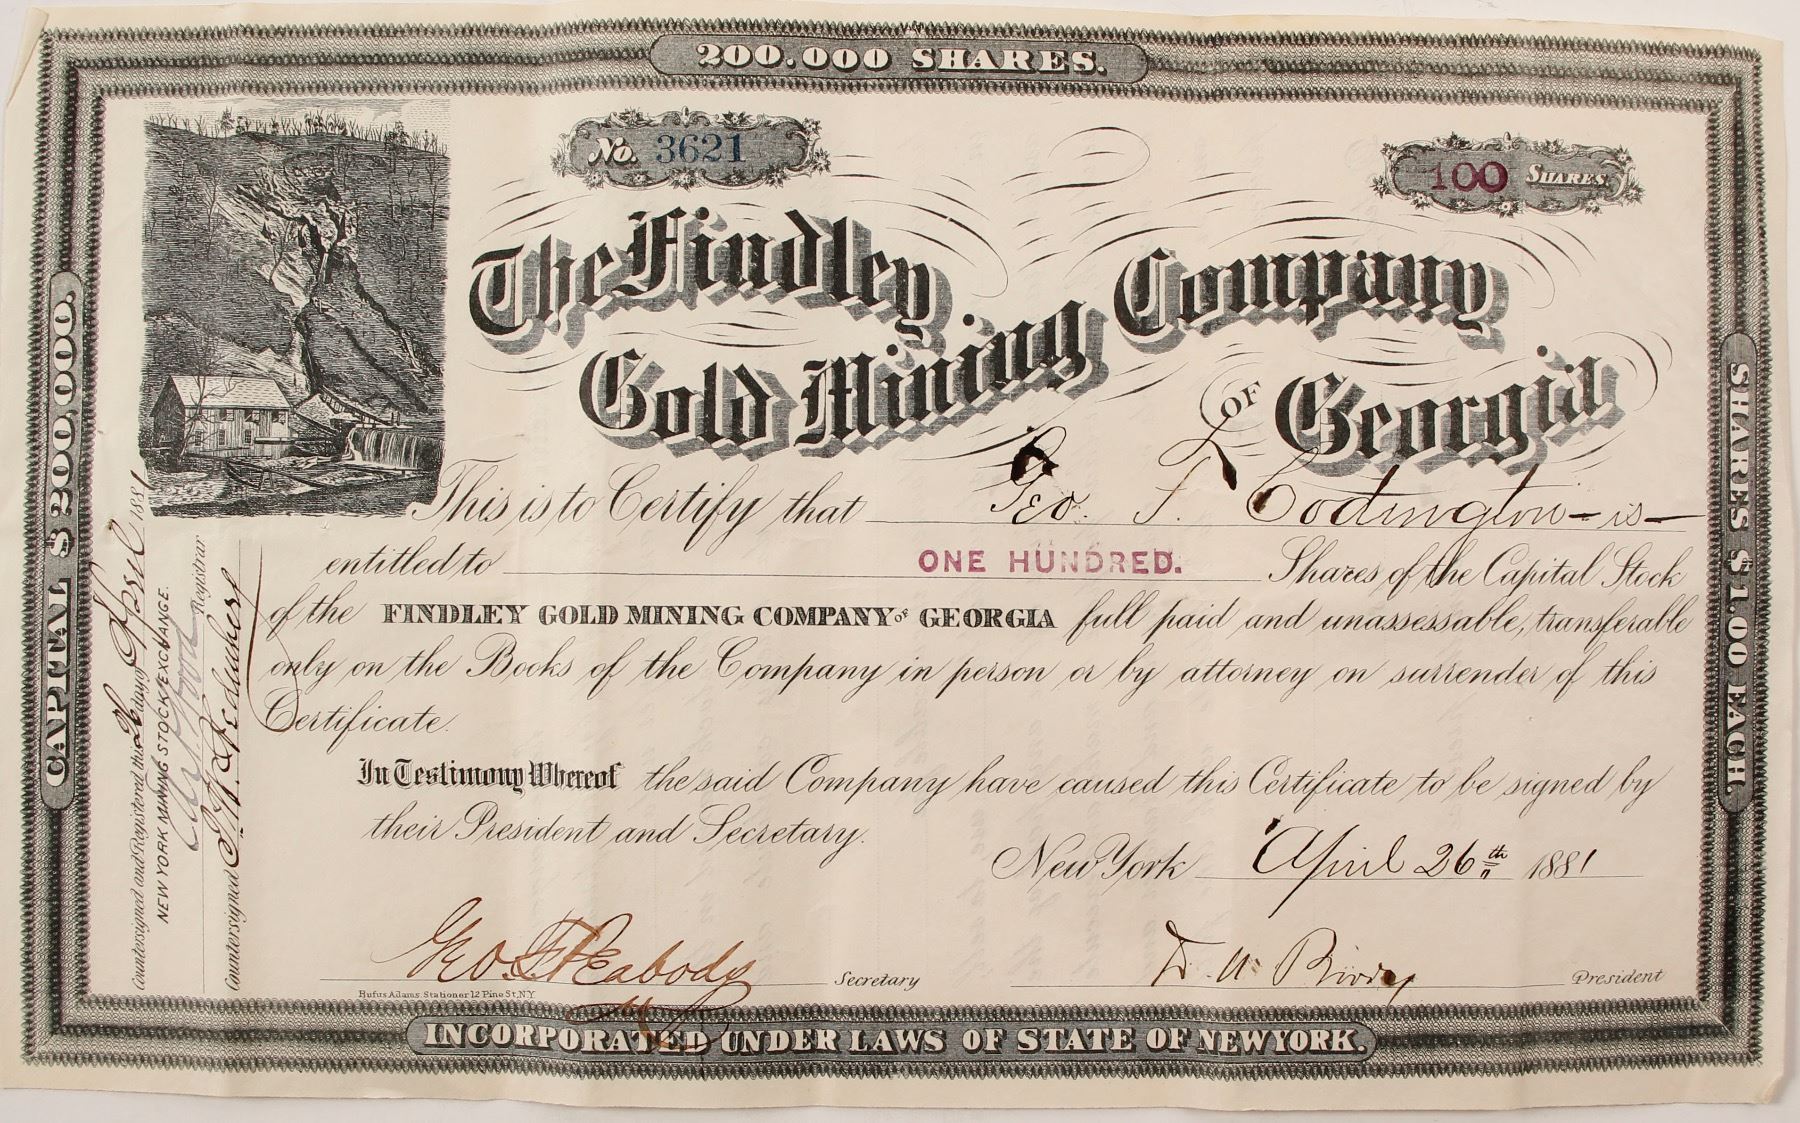 200.000 SHARES.
No. 3621
100 SHARES.
The Findley Gold Mining Company of Georgia
This is to Certify that Geo. F. Codington - is -
entitled to ONE HUNDRED. Shares of the Capital Stock
of the FINDLEY GOLD MINING COMPANY of GEORGIA full paid and unassessable, transferable
only on the Books of the Company in person or by attorney on surrender of this
Certificate.
In Testimony Whereof the said Company have caused this Certificate to be signed by
their President and Secretary.
New York April 26th 1881
Geo F Peabody Secretary
President
Rufus Adams. Stationer 12 Pine St, N.Y.
INCORPORATED UNDER LAWS OF STATE OF NEW YORK.
CAPITAL $200,000.
SHARES $1.00 EACH.
Countersigned and Registered this 26 day of April 1881
NEW YORK MINING STOCK EXCHANGE.
Registrar
Countersigned